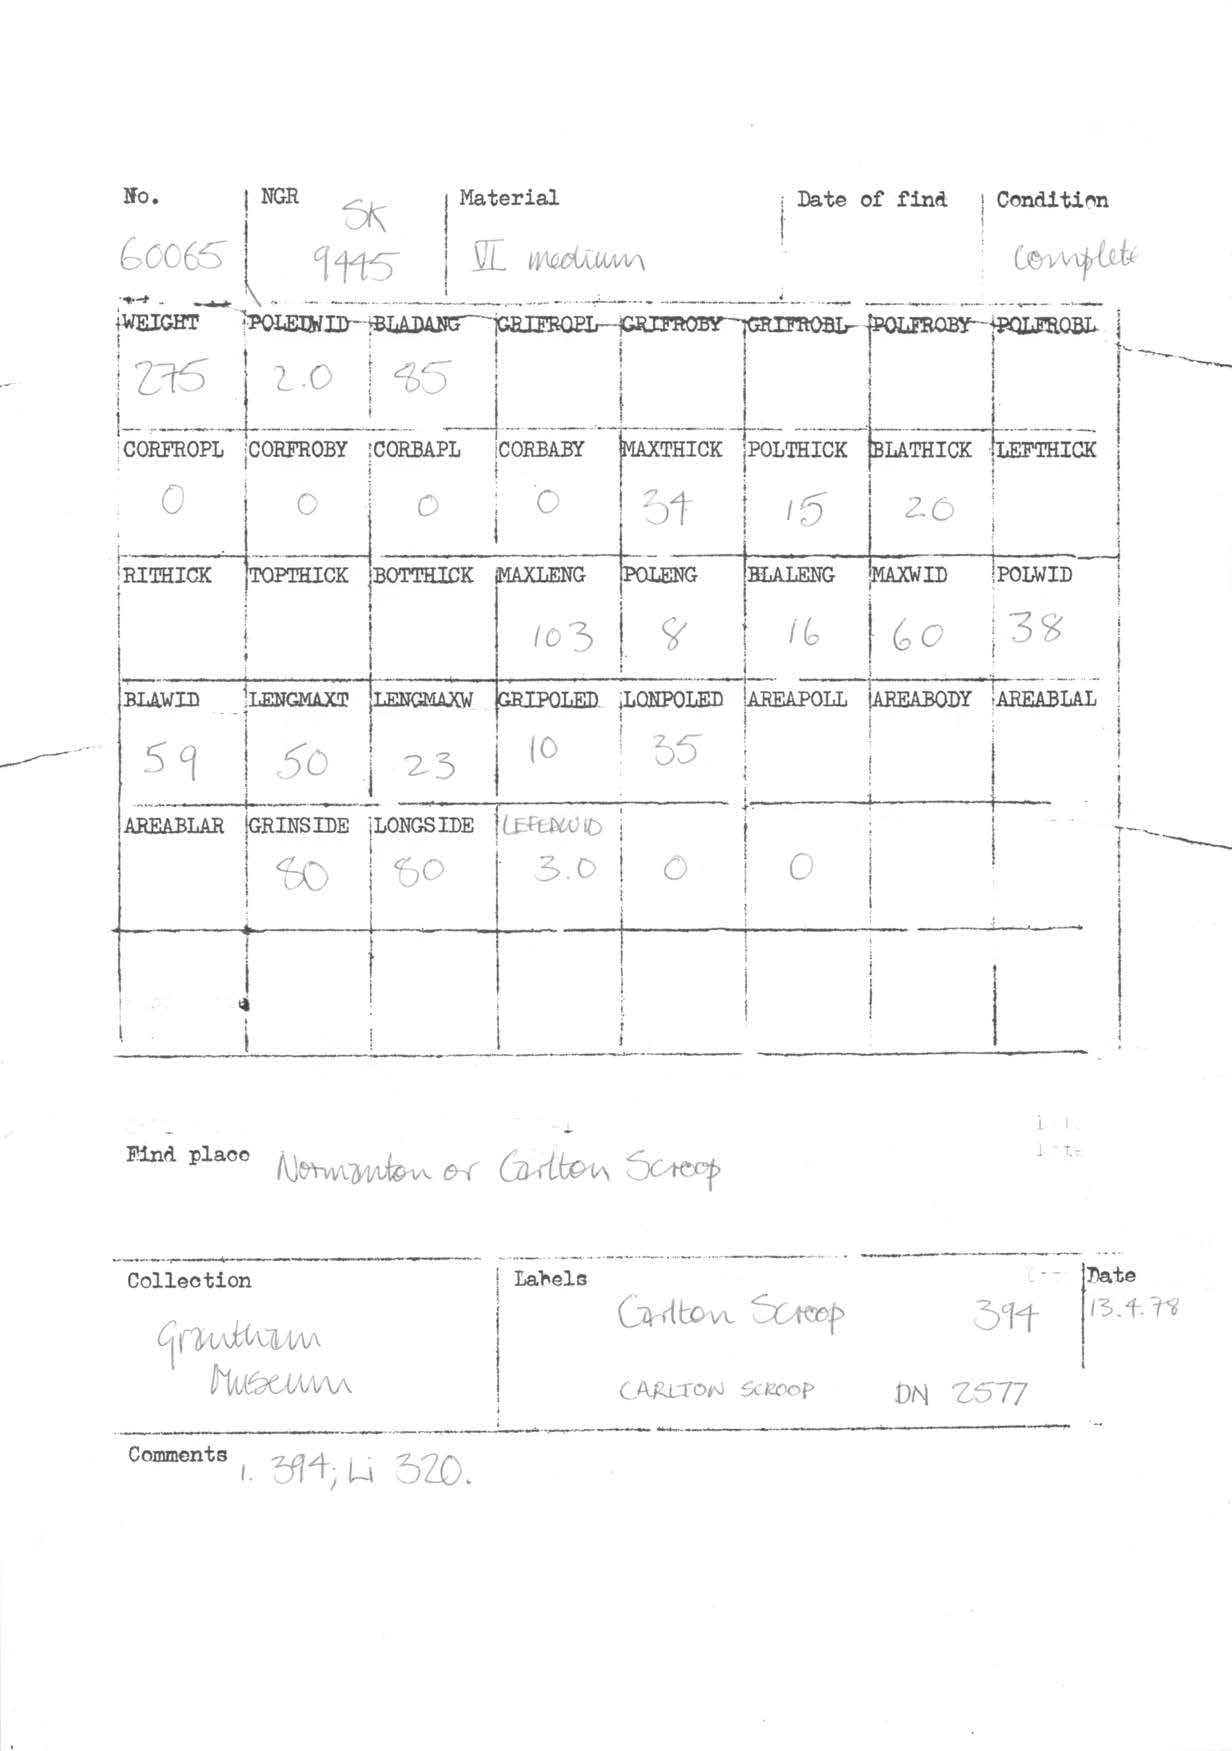 No. NGR Material Date of find Condition
SK
60065 9445 VI medium complete
WEIGHT POLEDWID BLADANG GRIFROPL GRIFROBY GRIFROBL POLFROBY POLFROBL
275 2.0 85
CORFROPL CORFROBY CORBAPL CORBABY MAXTHICK POLTHICK BLATHICK LEFTHICK
0 0 0 0 34 15 20
RITHICK TOPTHICK BOTTHICK MAXLENG POLENG BLALENG MAXWID POLWID
103 8 16 60 38
BLAWID LENGMAXT LENGMAXW GRIPOLED LONPOLED AREAPOLL AREABODY AREABLAL
59 50 23 10 35
AREABLAR GRINSIDE LONGSIDE LEFEDWID
80 80 3.0 0 0
Find place Normanton or Carlton Scroop
Collection Labels Date
Carlton Scroop 394 13.4.78
Grantham
Museum CARLTON SCROOP DN 2577
Comments 1. 394; Li 320.